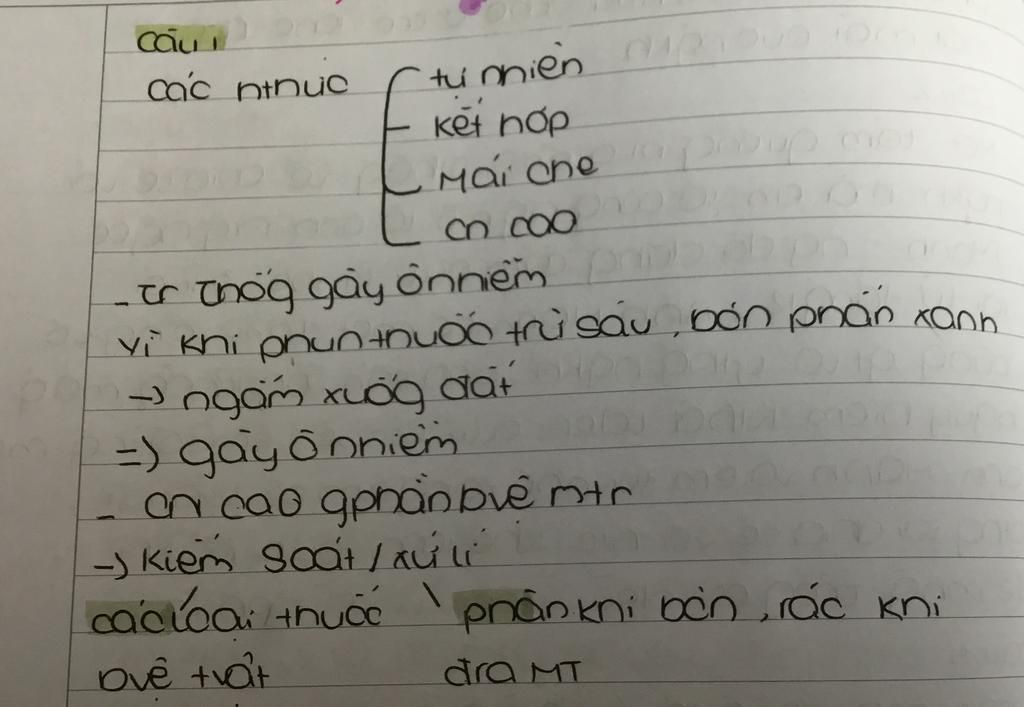 câu 1
các hthức tự nhiên
kết hợp
Mái che
cn cao
- tr thốg gây ô nhiễm
vì khi phun thuốc trừ sâu, bón phân xanh
→ ngấm xuốg đất
⇒ gây ô nhiễm
- cn cao gphần bvệ mtr
→ kiểm soát / xử lí
các loại thuốc \ phân khi bón, rác khi
bvệ tvật đra MT